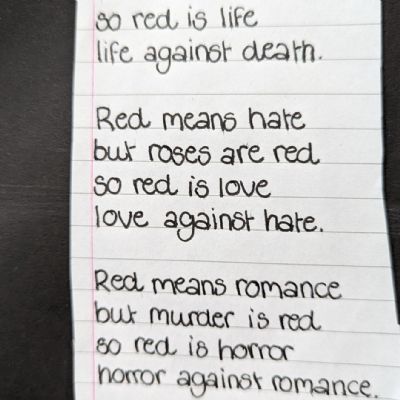 so red is life
life against death.
Red means hate
but roses are red
so red is love
love against hate.
Red means romance
but murder is red
so red is horror
horror against romance.